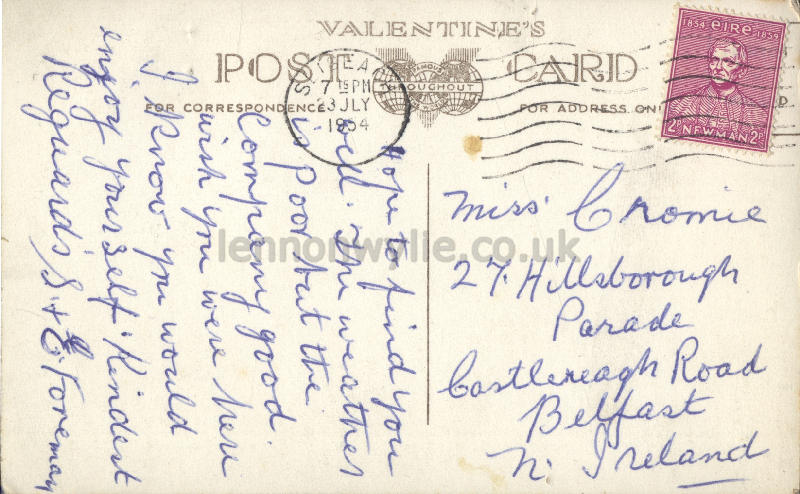 VALENTINE'S
POST CARD
FOR CORRESPONDENCE
FOR ADDRESS ON
THROUGHOUT
7 15 PM
23 JLY
1954
1854 éire 1859
2P NEWMAN 2P
Hope to find you
well. The weather
is poor but the
Company good.
wish you were here
I know you would
enjoy yourself. Kindest
Reguards S + E Foreman
Miss Cromie
27. Hillsborough
Parade
Castlereagh Road
Belfast
N. Ireland
lennonwylie.co.uk